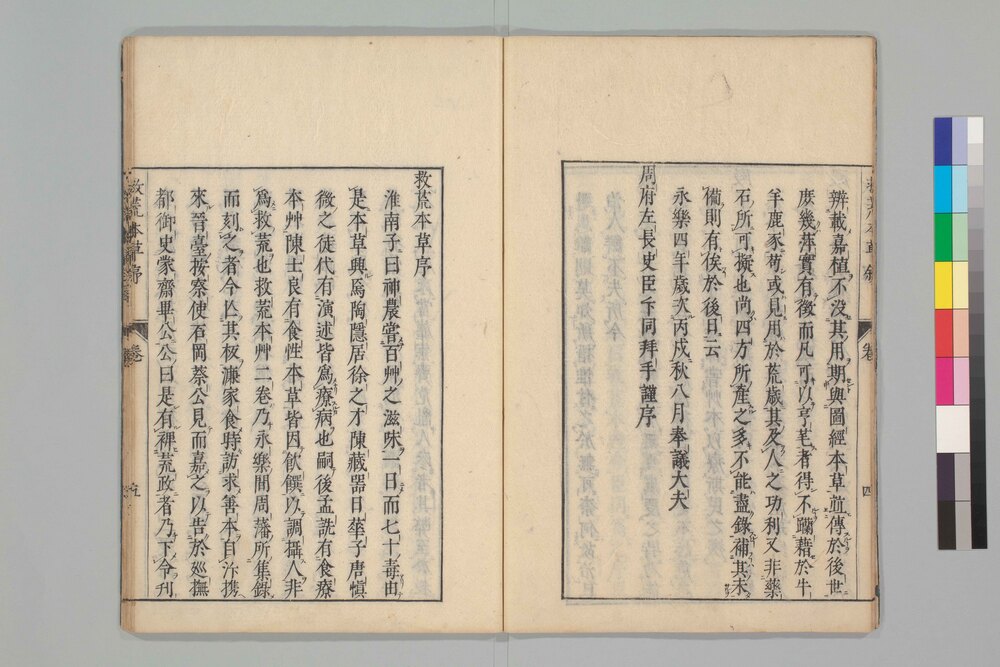 辨載嘉植不没其用期與圖經本草並傳於後世
庶幾萍實有徴而凡可以亨芼者得不躪藉於牛
羊鹿豕苟或見用於荒歳其及人之功利又非藥
石所可擬也尚四方所産之多不能盡錄補其未
備則有俟於後日云
永樂四年歳次丙戌秋八月奉議大夫
周府左長史臣卞同拜手謹序
四
救荒本草序
淮南子曰神農嘗百艸之滋味一日而七十毒由
是本草興焉陶隱居徐之才陳藏器日華子唐愼
微之徒代有演述皆爲療病也嗣後孟詵有食療
本艸陳士良有食性本草皆因飲饌以調攝人非
爲救荒也救荒本艸二卷乃永樂間周藩所集錄
而刻之者今亾其板濂家食時訪求善本自汴携
來晉臺按察使石岡蔡公見而嘉之以告於廵撫
都御史蒙齋畢公公曰是有裨荒政者乃下令刋
救荒本草序
五